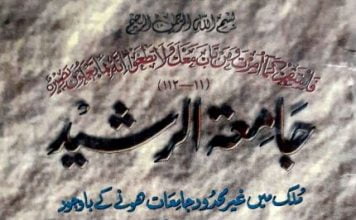 بسم الله الرحمن الرحيم
فاستقم كما أمرت ومن تاب معك ولا تطغوا إنه بما تعملون بصير
(۱۱—۱۱۲)
جامعة الرشید
ملک میں غیر محدود جامعات ہونے کے باوجود